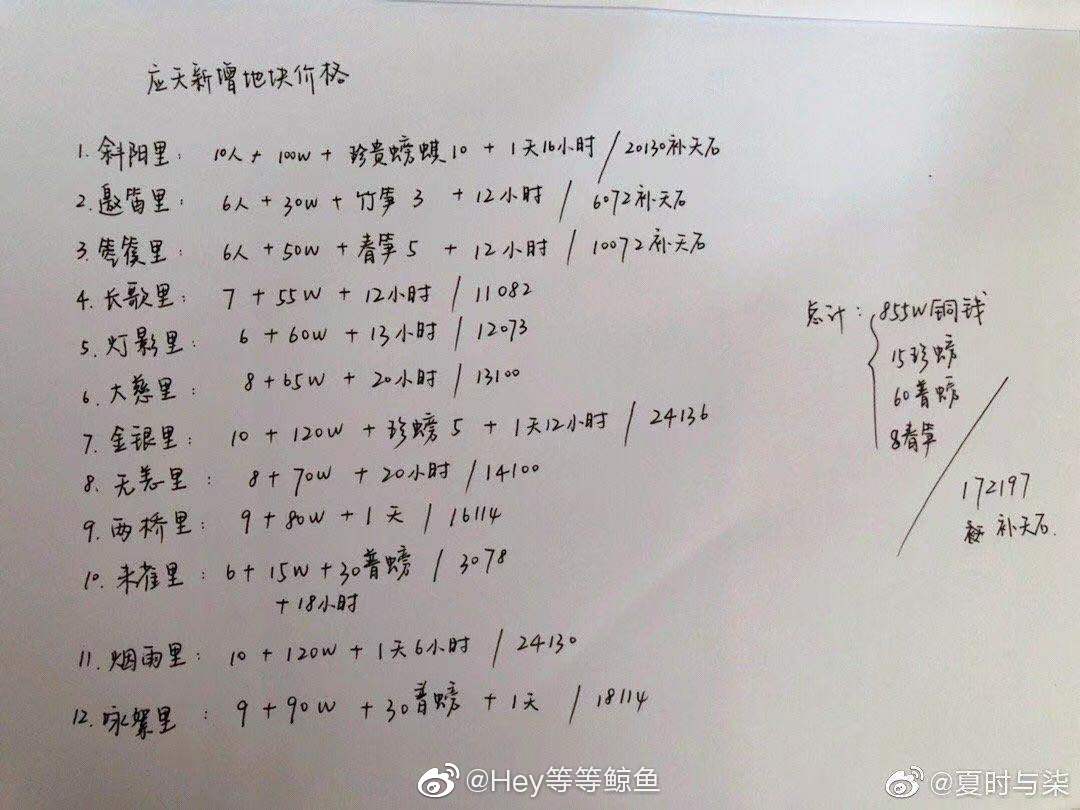 应天新增地块价格
1. 斜阳里: 10人 + 100W + 珍贵螃蜞10 + 1天16小时 / 20130补天石
2. 邀笛里: 6人 + 30W + 竹笋 3 + 12小时 / 6072补天石
3. 箜篌里: 6人 + 50W + 春笋 5 + 12小时 / 10072补天石
4. 长歌里: 7 + 55W + 12小时 / 11082
5. 灯影里: 6 + 60W + 13小时 / 12073
6. 大慈里: 8 + 65W + 20小时 / 13100
7. 金银里: 10 + 120W + 珍螃 5 + 1天12小时 / 24136
8. 无恙里: 8 + 70W + 20小时 / 14100
9. 两桥里: 9 + 80W + 1天 / 16114
10. 朱雀里: 6 + 15W + 30普螃 / 3078
+ 18小时
11. 烟雨里: 10 + 120W + 1天6小时 / 24130
12. 咏絮里: 9 + 90W + 30普螃 + 1天 / 18114
总计: 855W铜钱
15珍螃
60普螃
8春笋
172197
补天石.
@Hey等等鲸鱼
@夏时与柒